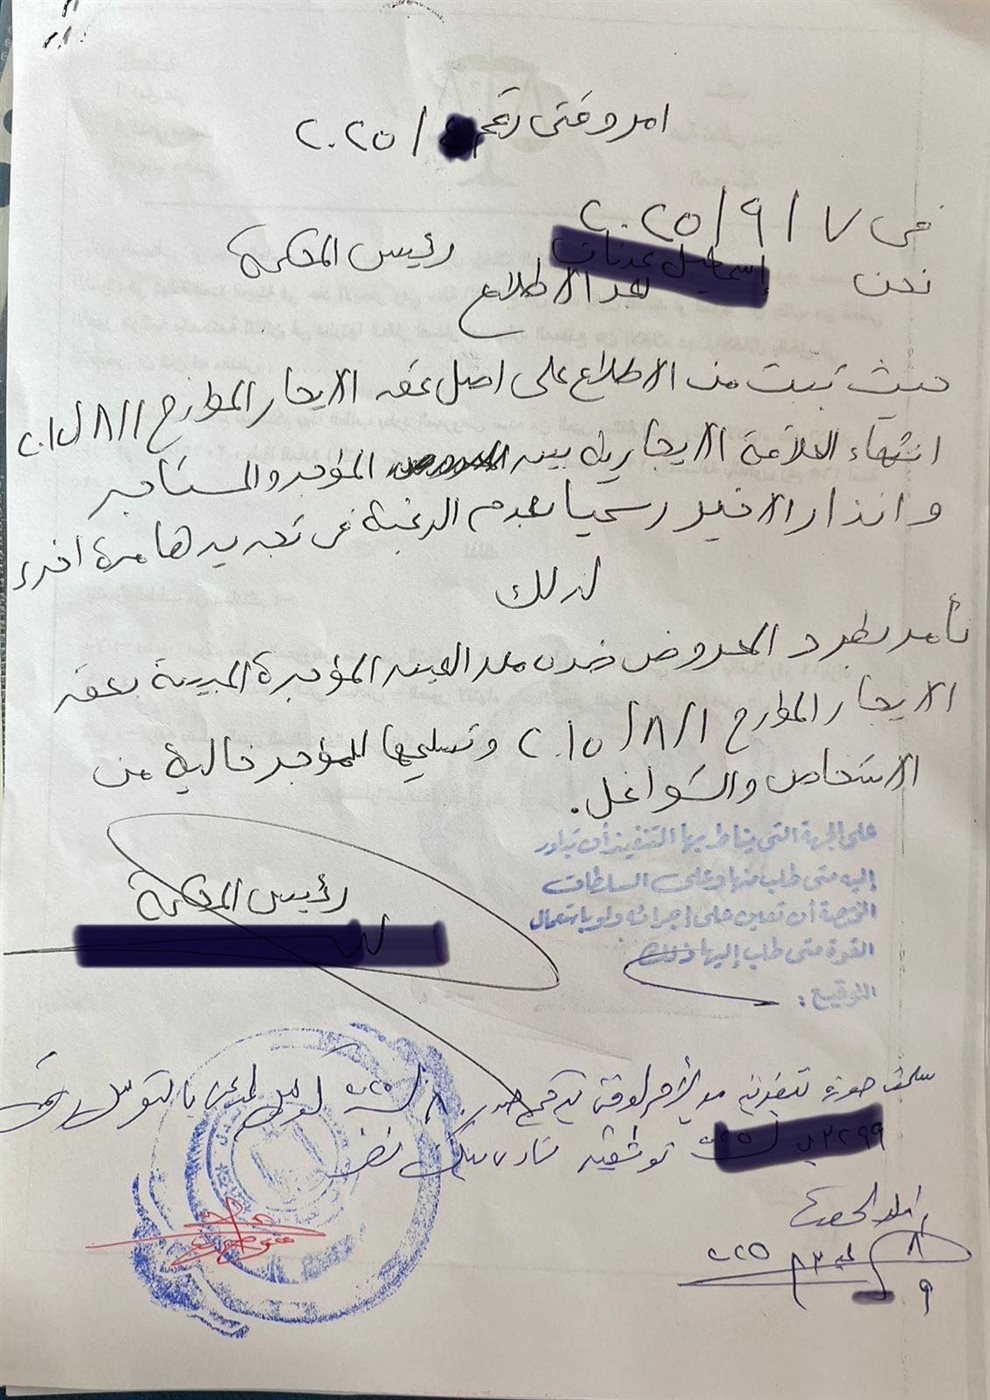 امر وقتى رقم / ٢٠٢٥
فى ٧ / ٩ / ٢٠٢٥
نحن رئيس المحكمة
بعد الاطلاع
حيث ثبت من الاطلاع على اصل عقد الايجار المؤرخ ١/٨/٢٠١٥
انتهاء العلاقة الايجارية بين المؤجر والمستأجر
وانذار الاخير رسميا بعدم الرغبة فى تجديدها مرة اخرى
لذلك
نأمر بطرد المعروض ضده من العين المؤجرة المبينة بعقد
الايجار المؤرخ ١/٨/٢٠١٥ وتسليمها للمؤجر خالية من
الاشخاص والشواغل.
رئيس المحكمة
على الجهة التي يناط بها التنفيذ أن تبادر
إليه متى طلب منها وعلى السلطات
المختصة أن تعين على إجرائه ولو باستعمال
القوة متى طلب إليها ذلك
التوقيع :
سلمت صورة تنفيذية من الأمر الوقتي
٢٠٢٥
٨
٩